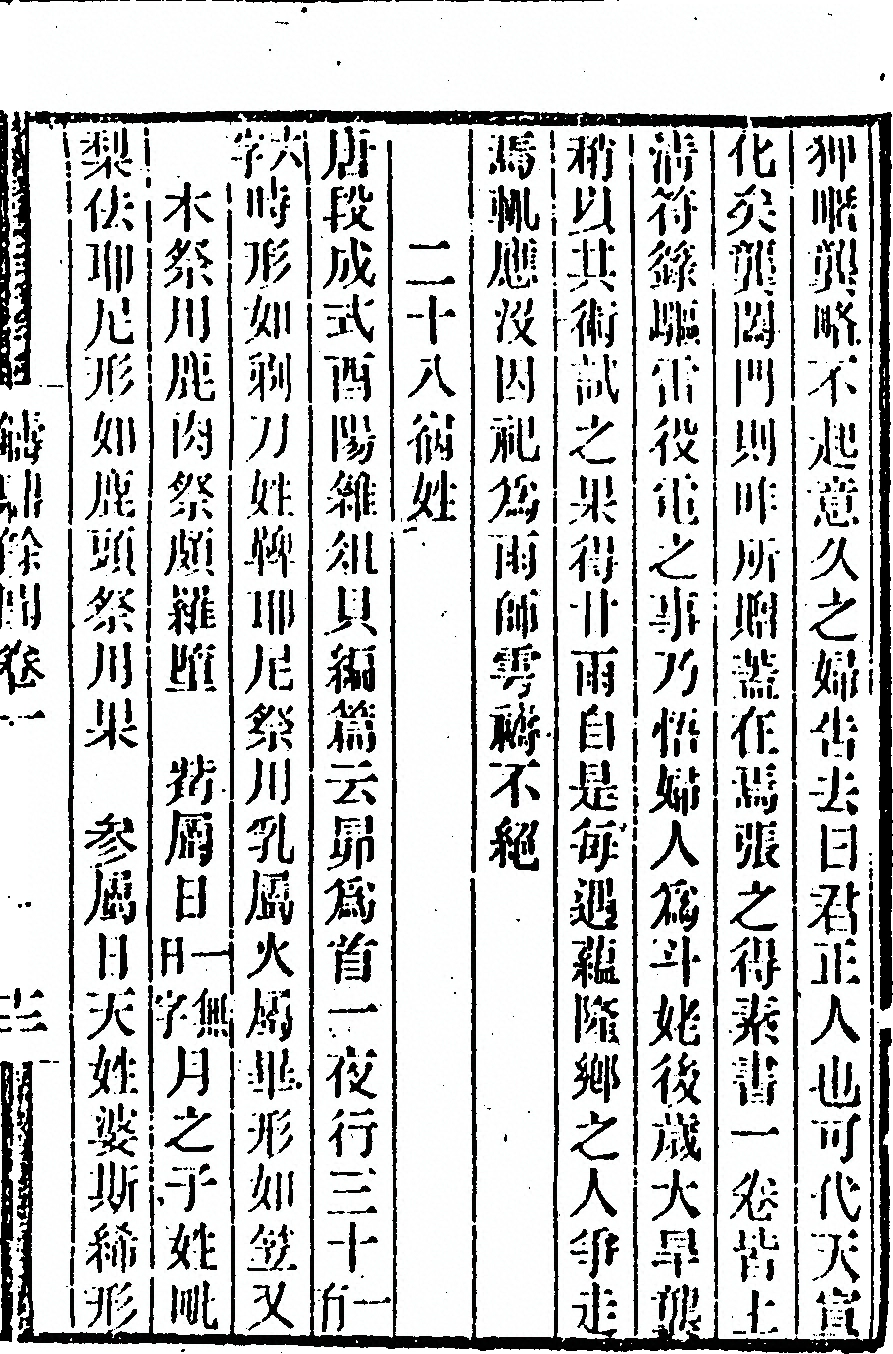 狎暱龔略不起意久之婦告去曰君正人也可代天宣
化矣龔閱門則昨所贈蓋在焉張之得素書一卷皆上
清符籙驅雷役電之事乃悟婦人為斗姥後歲大旱龔
稍以其術試之果得甘雨自是每遇蘊隆鄉之人爭走
焉輒應沒因祀為雨師雩禱不絕
二十八宿姓
唐段成式酉陽雜俎貝編篇云昴為首一夜行三十一有
六字時形如剃刀姓鞞耶尼祭用乳屬火屬畢形如笠叉
木祭用鹿肉祭頗羅墮 觜屬日一無日字月之子姓毗
梨佉耶尼形如鹿頭祭用果 參屬日天姓婆斯稀形
餘聞卷一